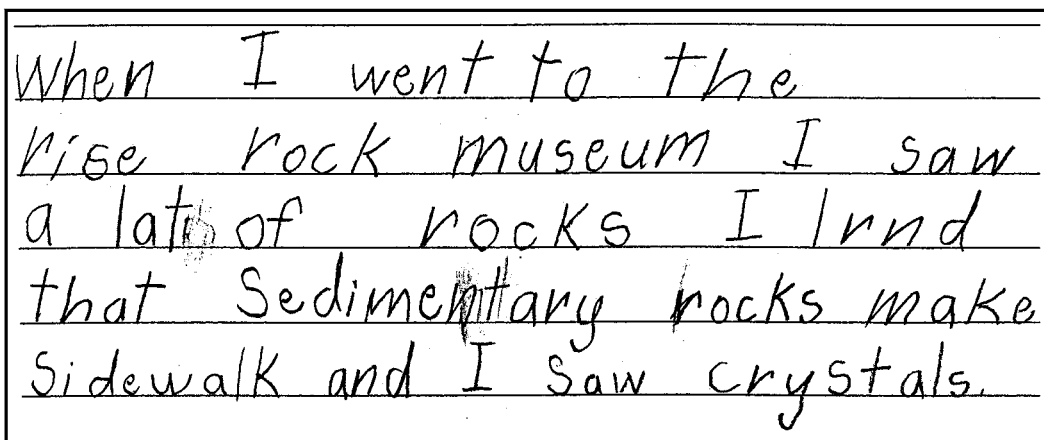 When I went to the
rise rock museum I saw
a lat of rocks I lrnd
that Sedimentary rocks make
Sidewalk and I Saw crystals.